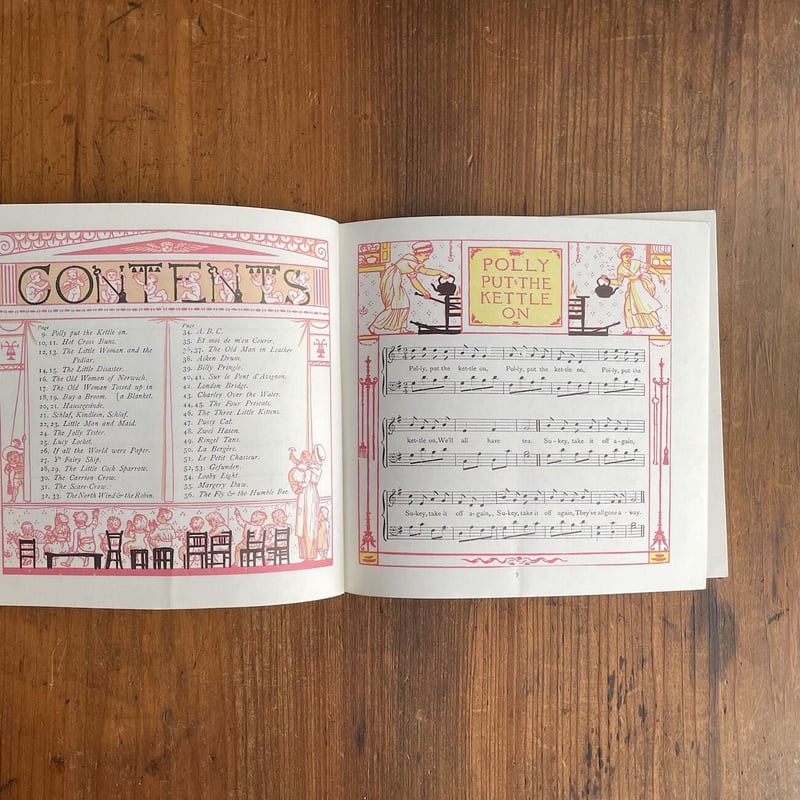 CONTENTS
Page
9. Polly put the Kettle on.
10, 11. Hot Cross Buns.
12, 13. The Little Woman and the
Pedlar.
14, 15. The Little Disaster.
16. The Old Woman of Norwich.
17. The Old Woman Tossed up in
18, 19. Buy a Broom. [a Blanket.
20, 21. Hausgesinde.
21. Schlaf, Kindlein, Schlaf.
22, 23. Little Man and Maid.
24. The Jolly Tester.
25. Lucy Locket.
26. If all the World were Paper.
27. Yͤ Fairy Ship.
28, 29. The Little Cock Sparrow.
30. The Carrion Crow.
31. The Scare-Crow.
32, 33. The North Wind & the Robin.
Page
34. A. B. C.
35. Et moi de m'en Courir.
36, 37. The Old Man in Leather
38. Aiken Drum.
39. Billy Pringle.
40, 41. Sur le Pont d'Avignon.
42. London Bridge.
43. Charley Over the Water.
44, 45. The Four Presents.
46. The Three Little Kittens.
47. Pussy Cat.
48. Zwei Hasen.
49. Ringel Tanz.
50. La Bergère.
51. Le Petit Chasseur.
52, 53. Gefunden.
54. Looby Light.
55. Margery Daw.
56. The Fly & the Humble Bee.
POLLY
PUT·THE
KETTLE
ON
Pol-ly, put the ket-tle on, Pol-ly, put the ket-tle on, Pol-ly, put the
ket-tle on, We'll all have tea. Su-key, take it off a-gain,
Su-key, take it off a-gain, Su-key, take it off again, They've all gone a - way.
9